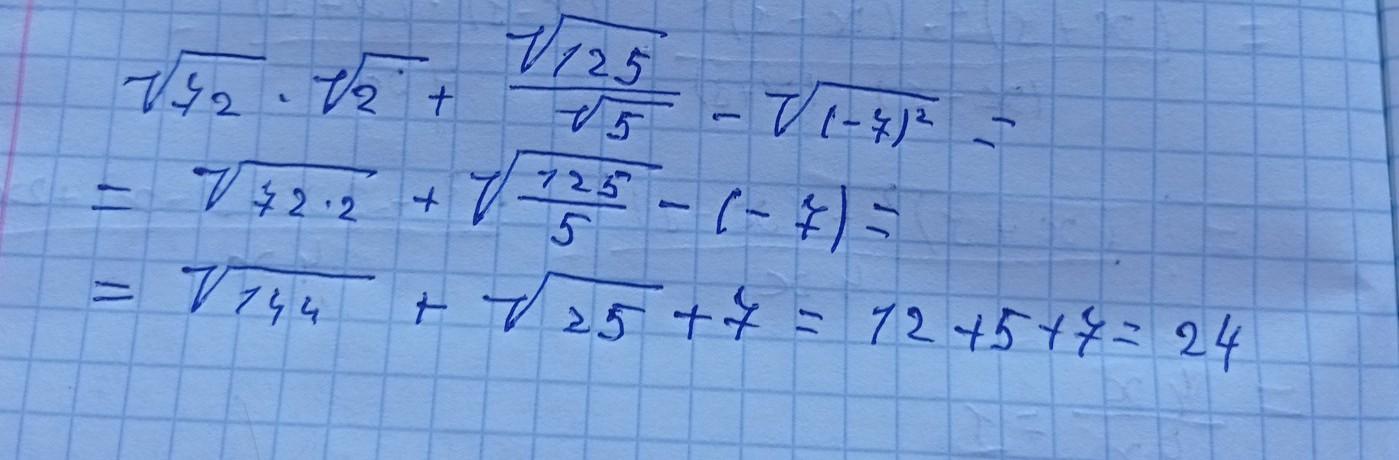 √72 · √2 + √125/√5 - √(-7)² =
= √72·2 + √125/5 - (-7) =
= √144 + √25 + 7 = 12 + 5 + 7 = 24